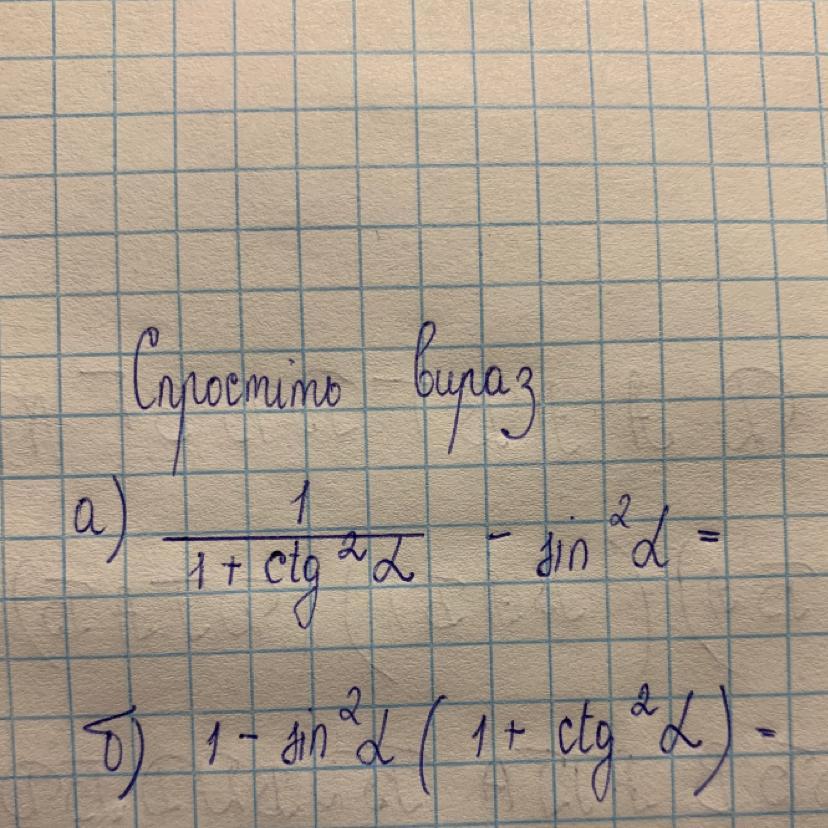 Спростіть вираз
а) 1 / (1 + ctg²α) - sin²α =
б) 1 - sin²α (1 + ctg²α) =